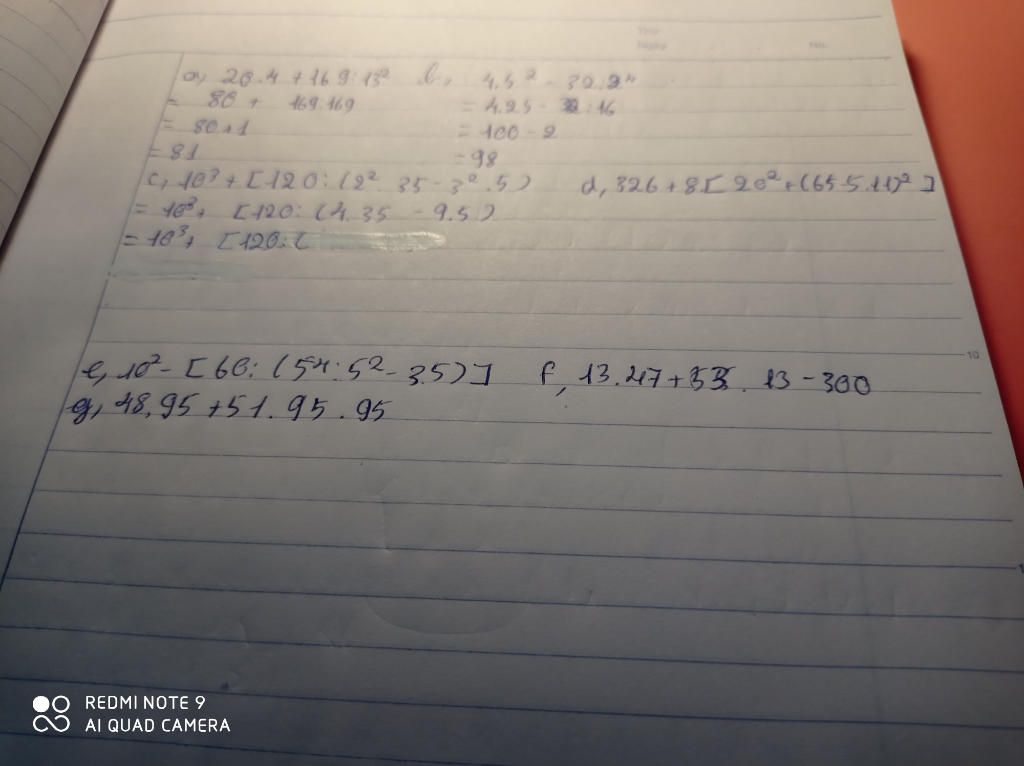 a, 20.4 + 169:13² b, 4.5² - 32:2⁴
= 80 + 169:169 = 4.25 - 32:16
= 80+1 = 100 - 2
= 81 = 98
c, 10³ + [120: (2². 35 - 3².5) d, 326 + 8[ 20² + (65-5.11)² ]
= 10³+ [120: (4.35 - 9.5)
= 10³+ [120: (
10
e, 10² - [60: (5⁴:5² - 3.5)] f, 13.47 + 53. 13 - 300
g, 48.95 + 51.95.95
REDMI NOTE 9
AI QUAD CAMERA